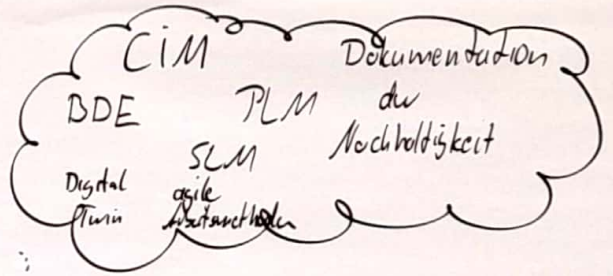 CiM
Dokumentation
der
Nachhaltigkeit
BDE
PLM
SCM
Digital
Twin
agile
Arbeitsmethoden